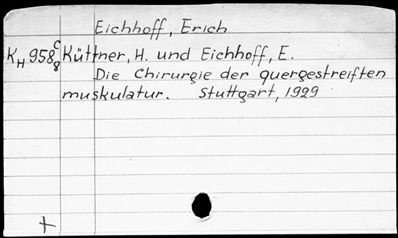 Eichhoff, Erich
K_H 958 c/g Küttner, H. und Eichhoff, E.
Die Chirurgie der quergestreiften
muskulatur. Stuttgart, 1929
+